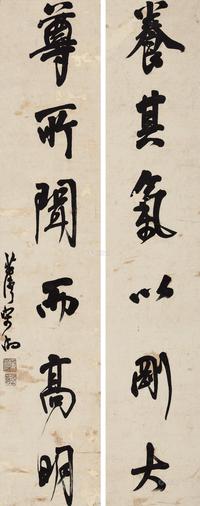 養其氣以剛大
尊所聞而高明